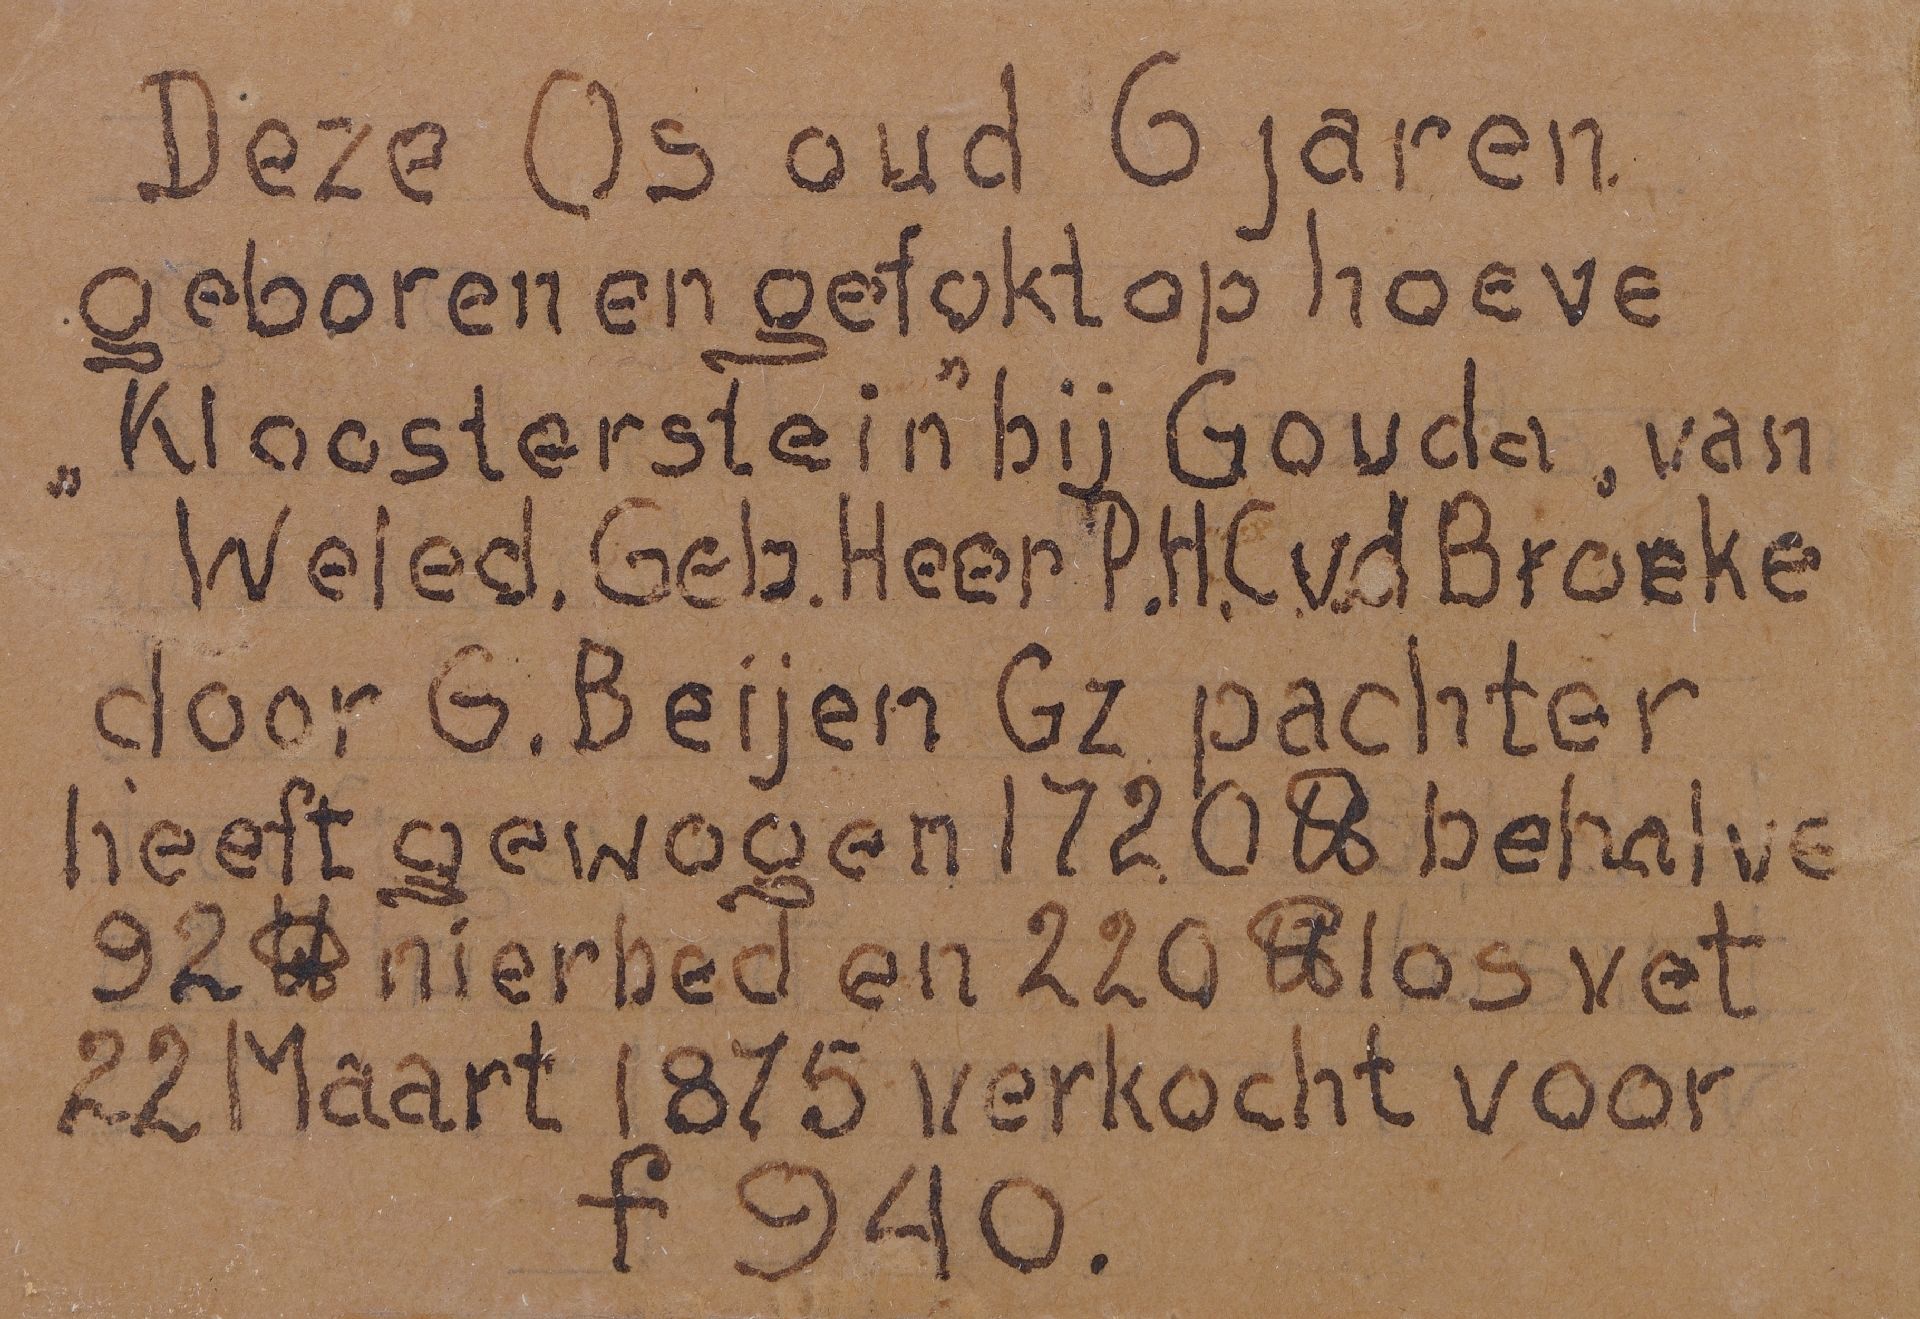 Deze Os oud 6 jaren.
geboren en gefokt op hoeve
„Kloosterstein” bij Gouda, van
Weled. Geb. Heer P.H.C v.d Broeke
door G. Beijen Gz pachter
heeft gewogen 1720 ℔ behalve
92 ℔ nierbed en 220 ℔ los vet
22 Maart 1875 verkocht voor
f 940.